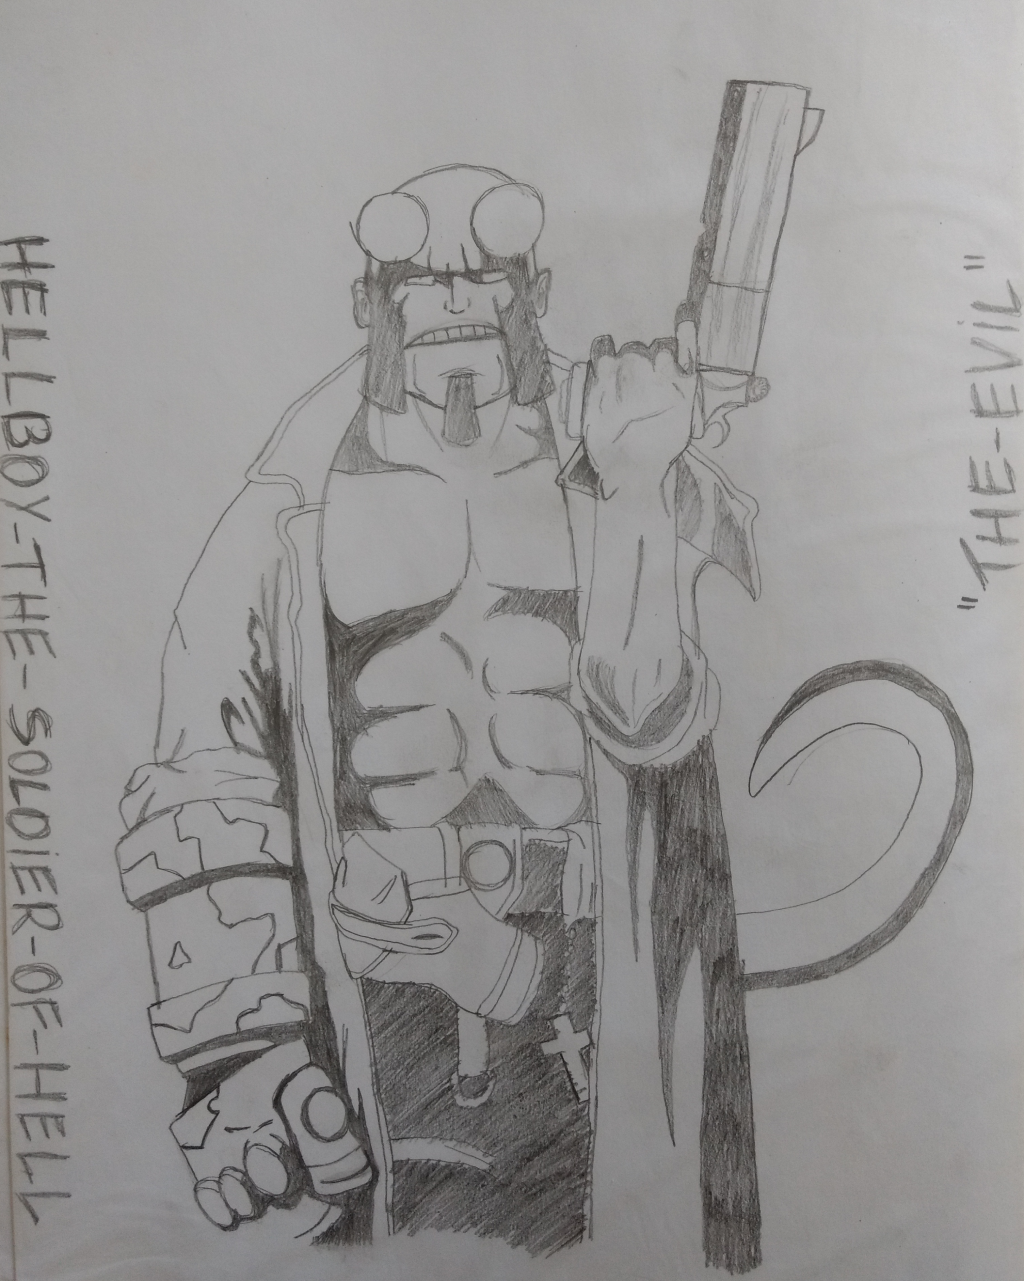 HELLBOY-THE-SOLDIER-OF-HELL
"THE-EViL"